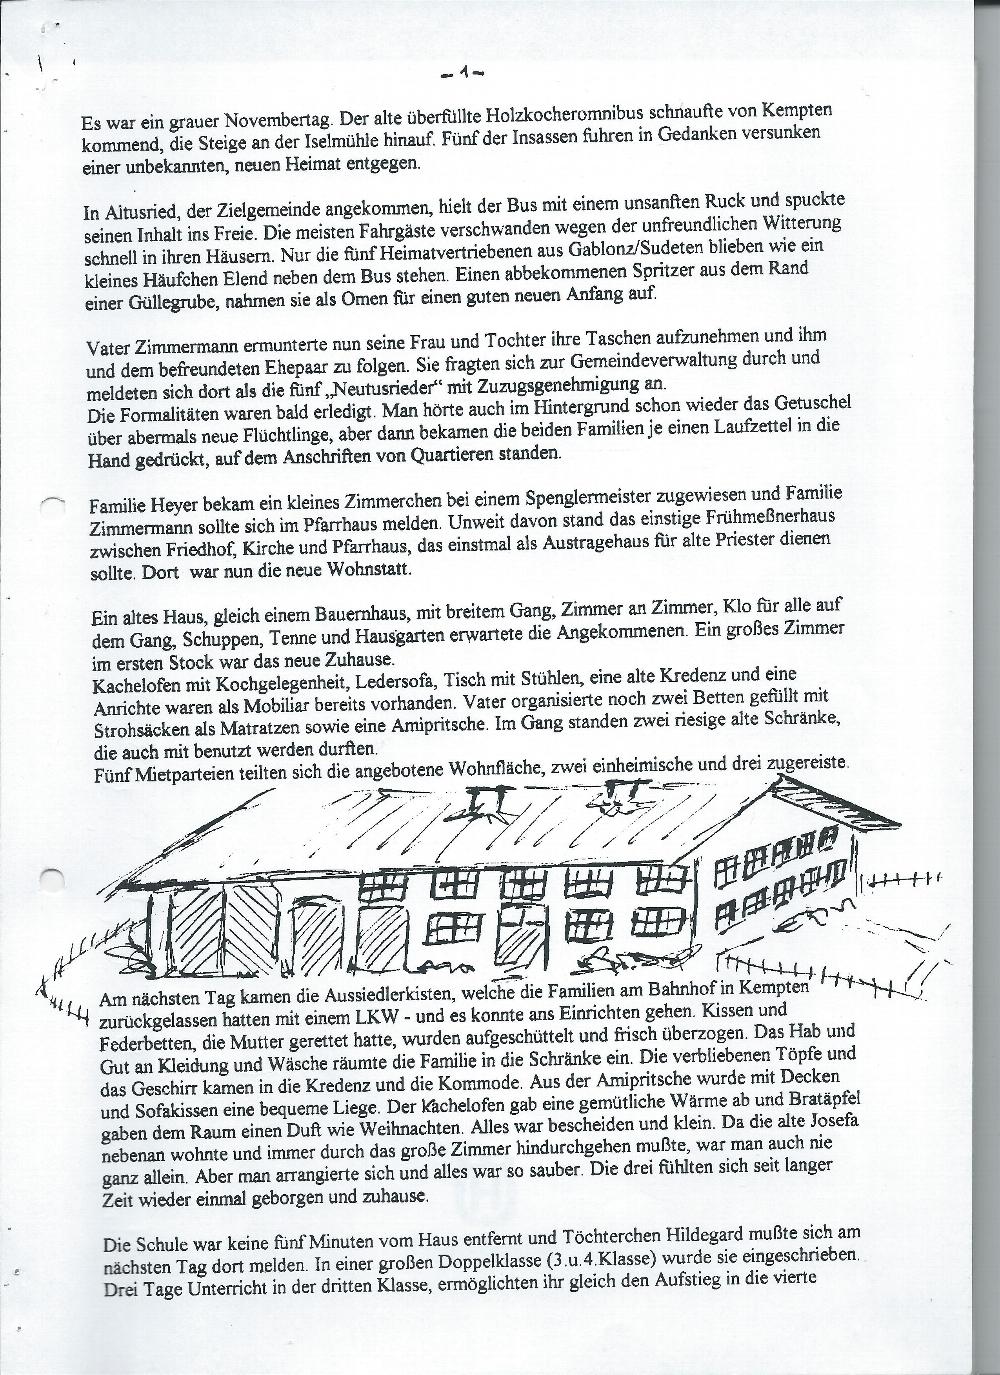 - 1 -
Es war ein grauer Novembertag. Der alte überfüllte Holzkocheromnibus schnaufte von Kempten
kommend, die Steige an der Iselmühle hinauf. Fünf der Insassen fuhren in Gedanken versunken
einer unbekannten, neuen Heimat entgegen.
In Altusried, der Zielgemeinde angekommen, hielt der Bus mit einem unsanften Ruck und spuckte
seinen Inhalt ins Freie. Die meisten Fahrgäste verschwanden wegen der unfreundlichen Witterung
schnell in ihren Häusern. Nur die fünf Heimatvertriebenen aus Gablonz/Sudeten blieben wie ein
kleines Häufchen Elend neben dem Bus stehen. Einen abbekommenen Spritzer aus dem Rand
einer Güllegrube, nahmen sie als Omen für einen guten neuen Anfang auf.
Vater Zimmermann ermunterte nun seine Frau und Tochter ihre Taschen aufzunehmen und ihm
und dem befreundeten Ehepaar zu folgen. Sie fragten sich zur Gemeindeverwaltung durch und
meldeten sich dort als die fünf „Neutusrieder“ mit Zuzugsgenehmigung an.
Die Formalitäten waren bald erledigt. Man hörte auch im Hintergrund schon wieder das Getuschel
über abermals neue Flüchtlinge, aber dann bekamen die beiden Familien je einen Laufzettel in die
Hand gedrückt, auf dem Anschriften von Quartieren standen.
Familie Heyer bekam ein kleines Zimmerchen bei einem Spenglermeister zugewiesen und Familie
Zimmermann sollte sich im Pfarrhaus melden. Unweit davon stand das einstige Frühmeßnerhaus
zwischen Friedhof, Kirche und Pfarrhaus, das einstmal als Austragehaus für alte Priester dienen
sollte. Dort war nun die neue Wohnstatt.
Ein altes Haus, gleich einem Bauernhaus, mit breitem Gang, Zimmer an Zimmer, Klo für alle auf
dem Gang, Schuppen, Tenne und Hausgarten erwartete die Angekommenen. Ein großes Zimmer
im ersten Stock war das neue Zuhause.
Kachelofen mit Kochgelegenheit, Ledersofa, Tisch mit Stühlen, eine alte Kredenz und eine
Anrichte waren als Mobiliar bereits vorhanden. Vater organisierte noch zwei Betten gefüllt mit
Strohsäcken als Matratzen sowie eine Amipritsche. Im Gang standen zwei riesige alte Schränke,
die auch mit benutzt werden durften.
Fünf Mietparteien teilten sich die angebotene Wohnfläche, zwei einheimische und drei zugereiste.
Am nächsten Tag kamen die Aussiedlerkisten, welche die Familien am Bahnhof in Kempten
zurückgelassen hatten mit einem LKW - und es konnte ans Einrichten gehen. Kissen und
Federbetten, die Mutter gerettet hatte, wurden aufgeschüttelt und frisch überzogen. Das Hab und
Gut an Kleidung und Wäsche räumte die Familie in die Schränke ein. Die verbliebenen Töpfe und
das Geschirr kamen in die Kredenz und die Kommode. Aus der Amipritsche wurde mit Decken
und Sofakissen eine bequeme Liege. Der Kachelofen gab eine gemütliche Wärme ab und Bratäpfel
gaben dem Raum einen Duft wie Weihnachten. Alles war bescheiden und klein. Da die alte Josefa
nebenan wohnte und immer durch das große Zimmer hindurchgehen mußte, war man auch nie
ganz allein. Aber man arrangierte sich und alles war so sauber. Die drei fühlten sich seit langer
Zeit wieder einmal geborgen und zuhause.
Die Schule war keine fünf Minuten vom Haus entfernt und Töchterchen Hildegard mußte sich am
nächsten Tag dort melden. In einer großen Doppelklasse (3.u.4.Klasse) wurde sie eingeschrieben.
Drei Tage Unterricht in der dritten Klasse, ermöglichten ihr gleich den Aufstieg in die vierte